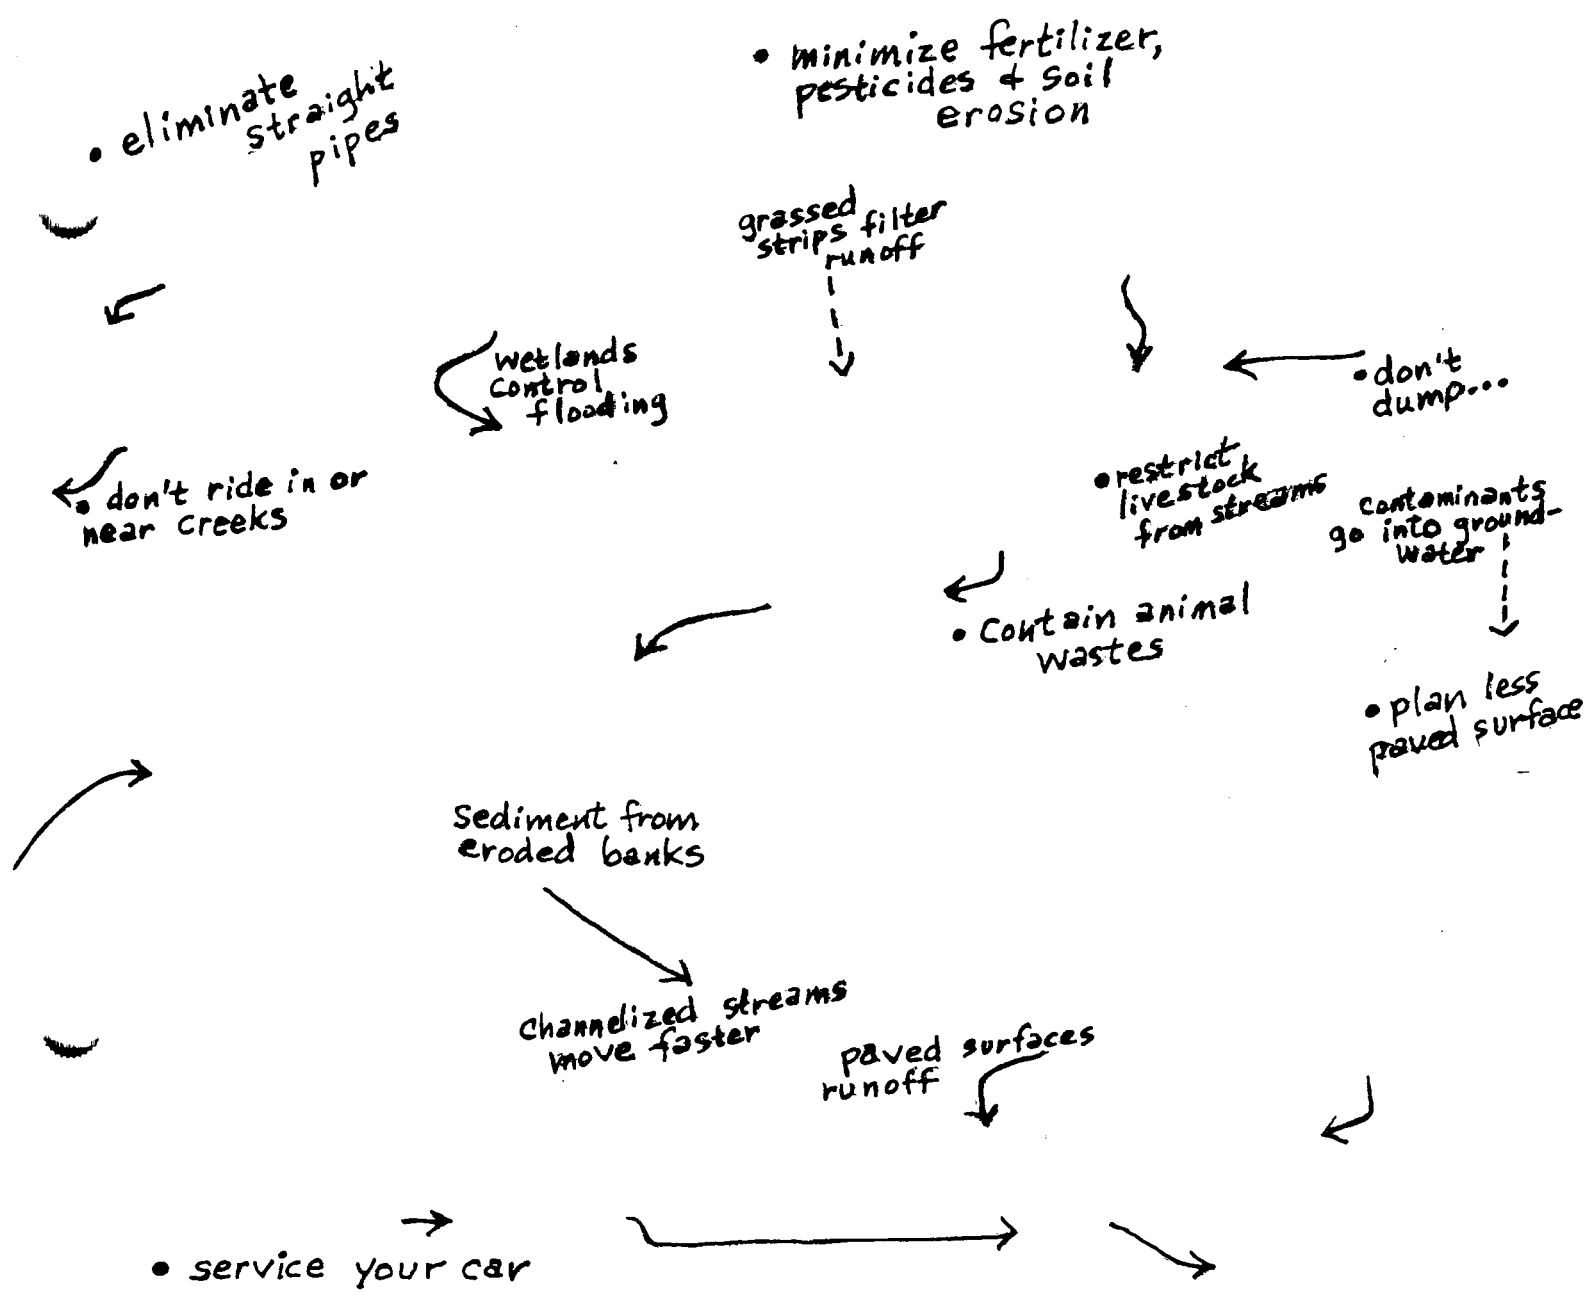 • eliminate
straight
pipes
• minimize fertilizer,
pesticides & soil
erosion
grassed
strips filter
runoff
wetlands
control
flooding
• don't
dump...
• don't ride in or
near creeks
• restrict
livestock
from streams
contaminants
go into ground-
water
• Contain animal
wastes
• plan less
paved surface
Sediment from
eroded banks
Channelized streams
move faster
paved surfaces
runoff
• service your car